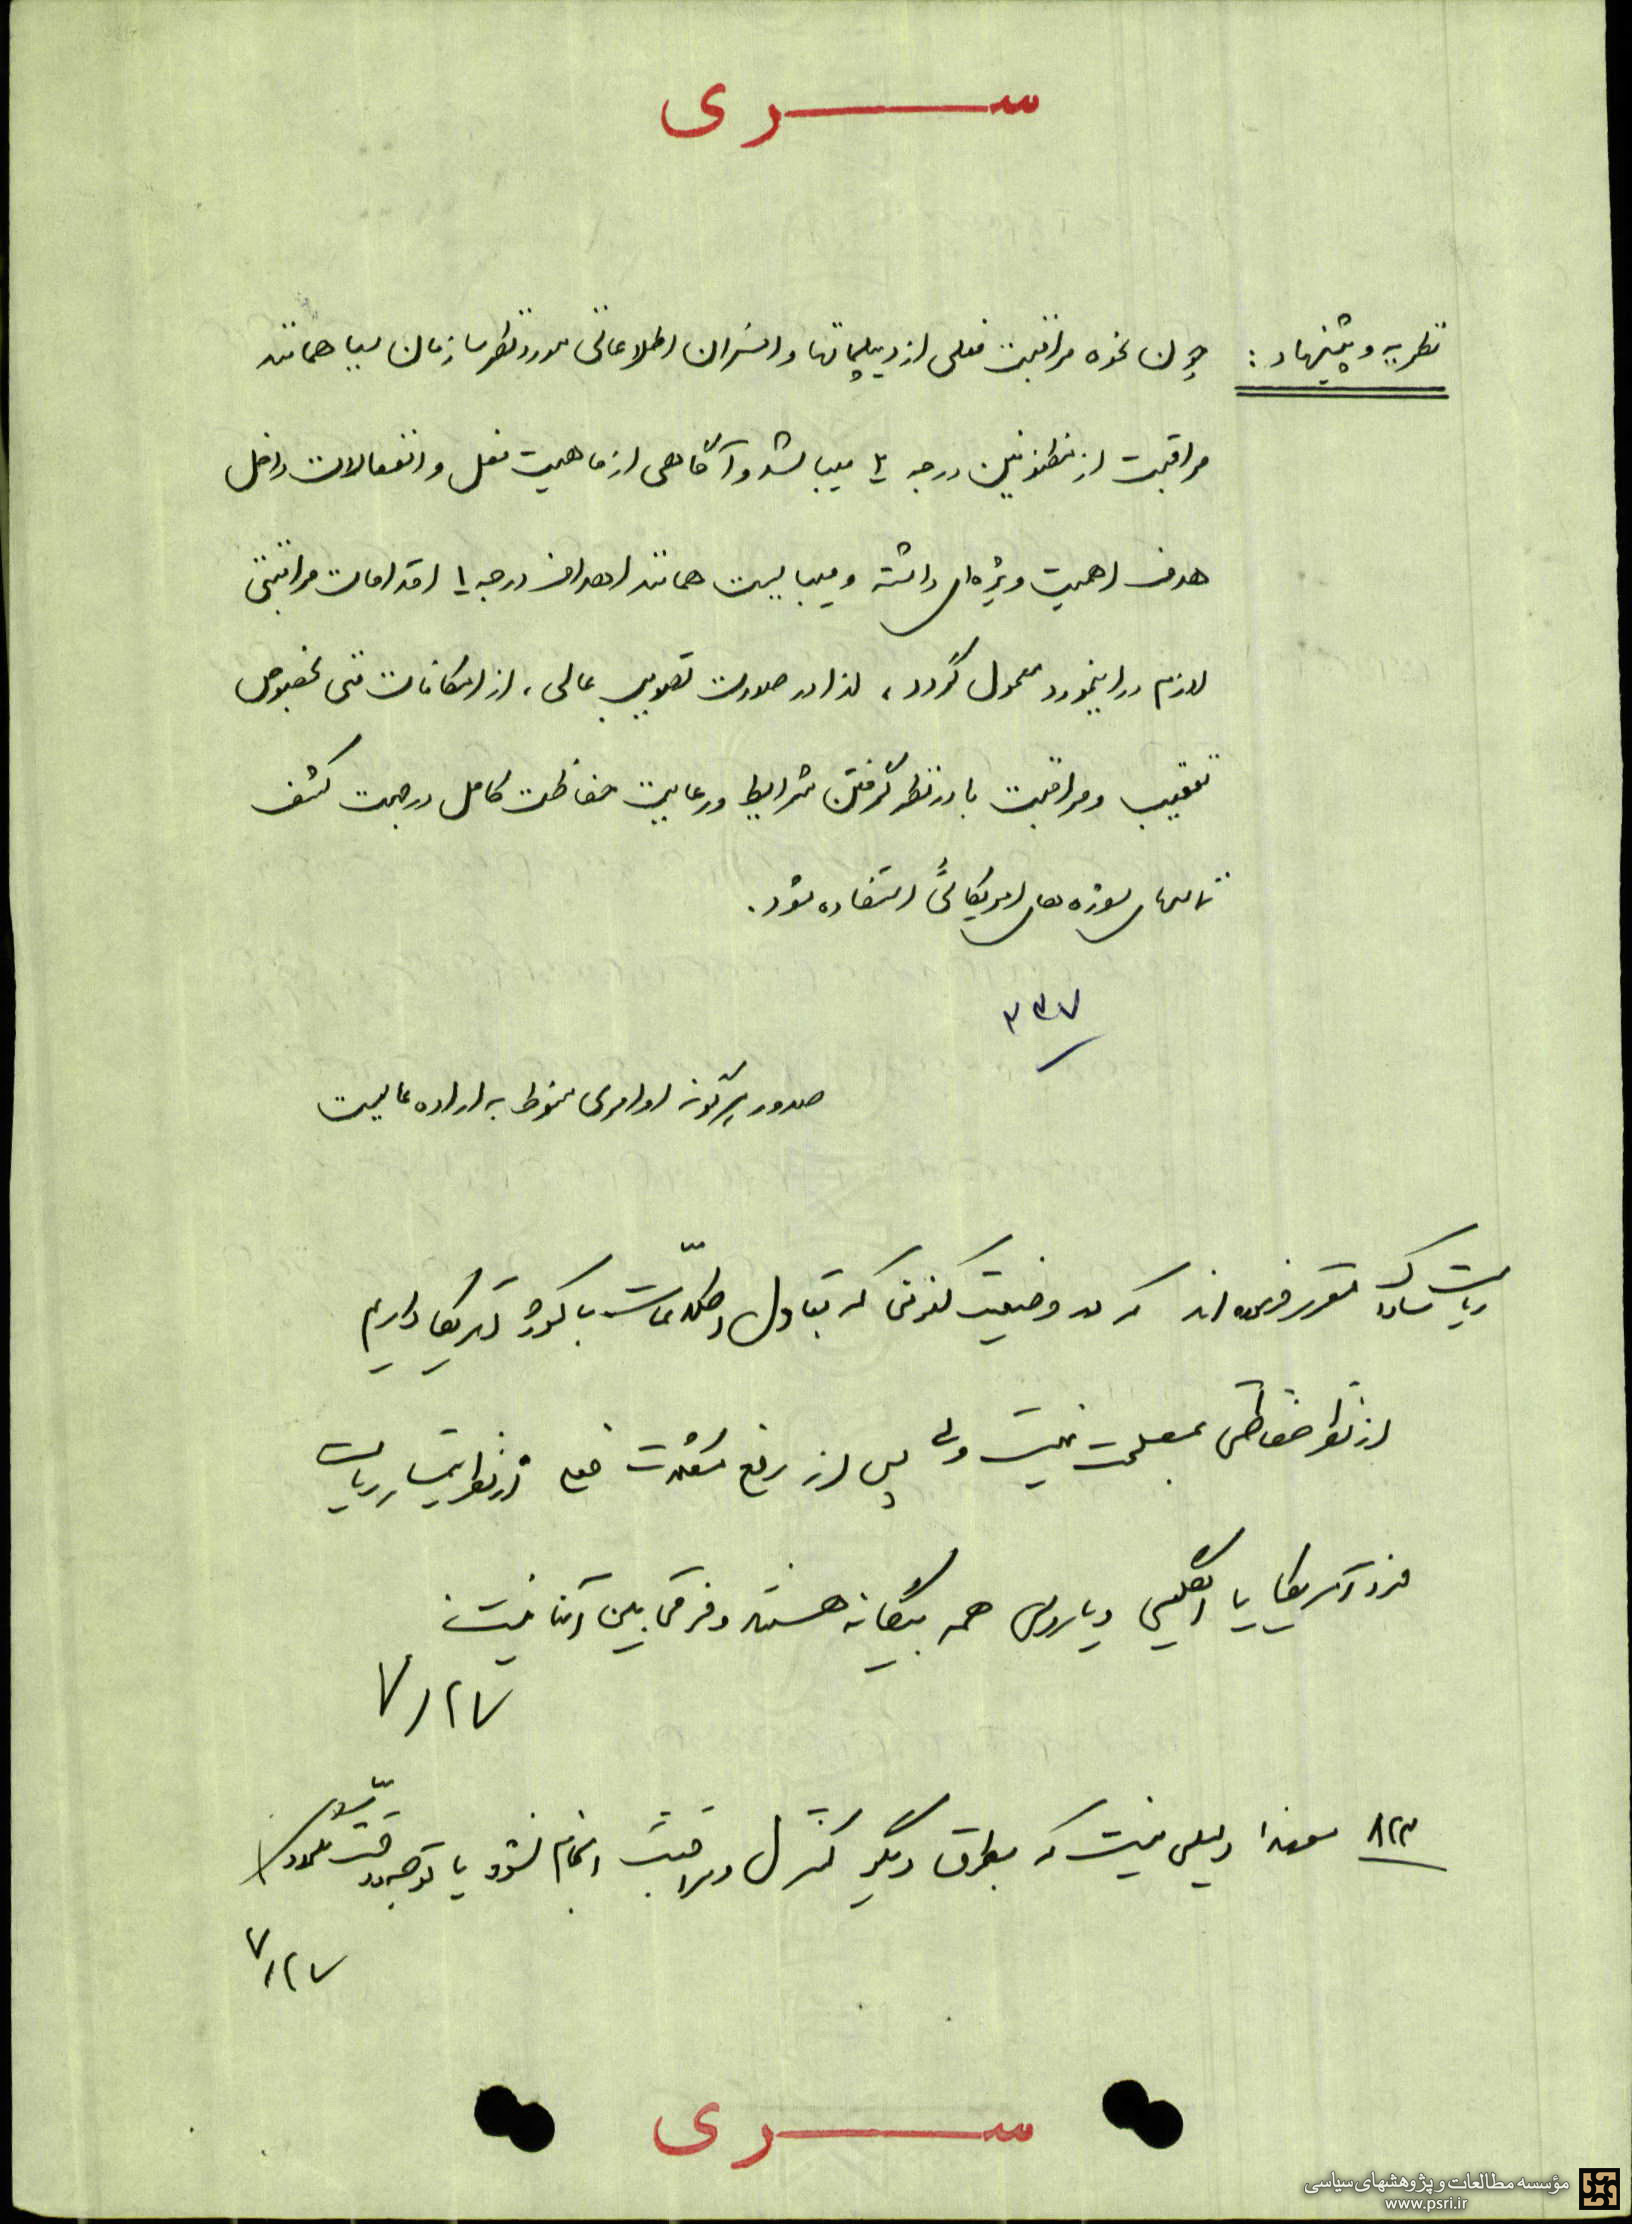 سری
نظریه و پیشنهاد : چون نحوه مراقبت فعلی از دیپلماتها و افسران اطلاعاتی مورد نظر سازمان سیا همانند
مراقبت از مظنونین درجه ۲ میباشد و آگاهی از ماهیت فعل و انفعالات داخل
هدف اهمیت ویژه‌ای داشته و میبایست همانند اهداف درجه ۱ اقدامات مراقبتی
لازم در اینمورد معمول گردد ، لذا در صورت تصویب عالی ، از امکانات فنی بخصوص
تعقیب و مراقبت با در نظر گرفتن شرایط و رعایت حفاظت کامل در جهت کشف
تماسهای سوژه های امریکائی استفاده شود .
۳۳۷
صدور هرگونه اوامری منوط به اراده عالیست
ریاست ساواک مقرر فرموده‌اند که در وضعیت کنونی که تبادل اطلاعات با کشور آمریکا داریم
از نظر حفاظتی بمصلحت نیست ولی پس از رفع مشکلات فعلی از نظر تیمسار ریاست
فرد آمریکایی یا انگلیسی و یا روسی همه بیگانه هستند و فرقی بین آنها نیست
۷/۲۷
۸۲۳ معهذا دلیلی نیست که بطرق دیگر کنترل و مراقبت انجام نشود با توجه
۷/۲۷
سری
مؤسسه مطالعات و پژوهشهای سیاسی
www.psri.ir